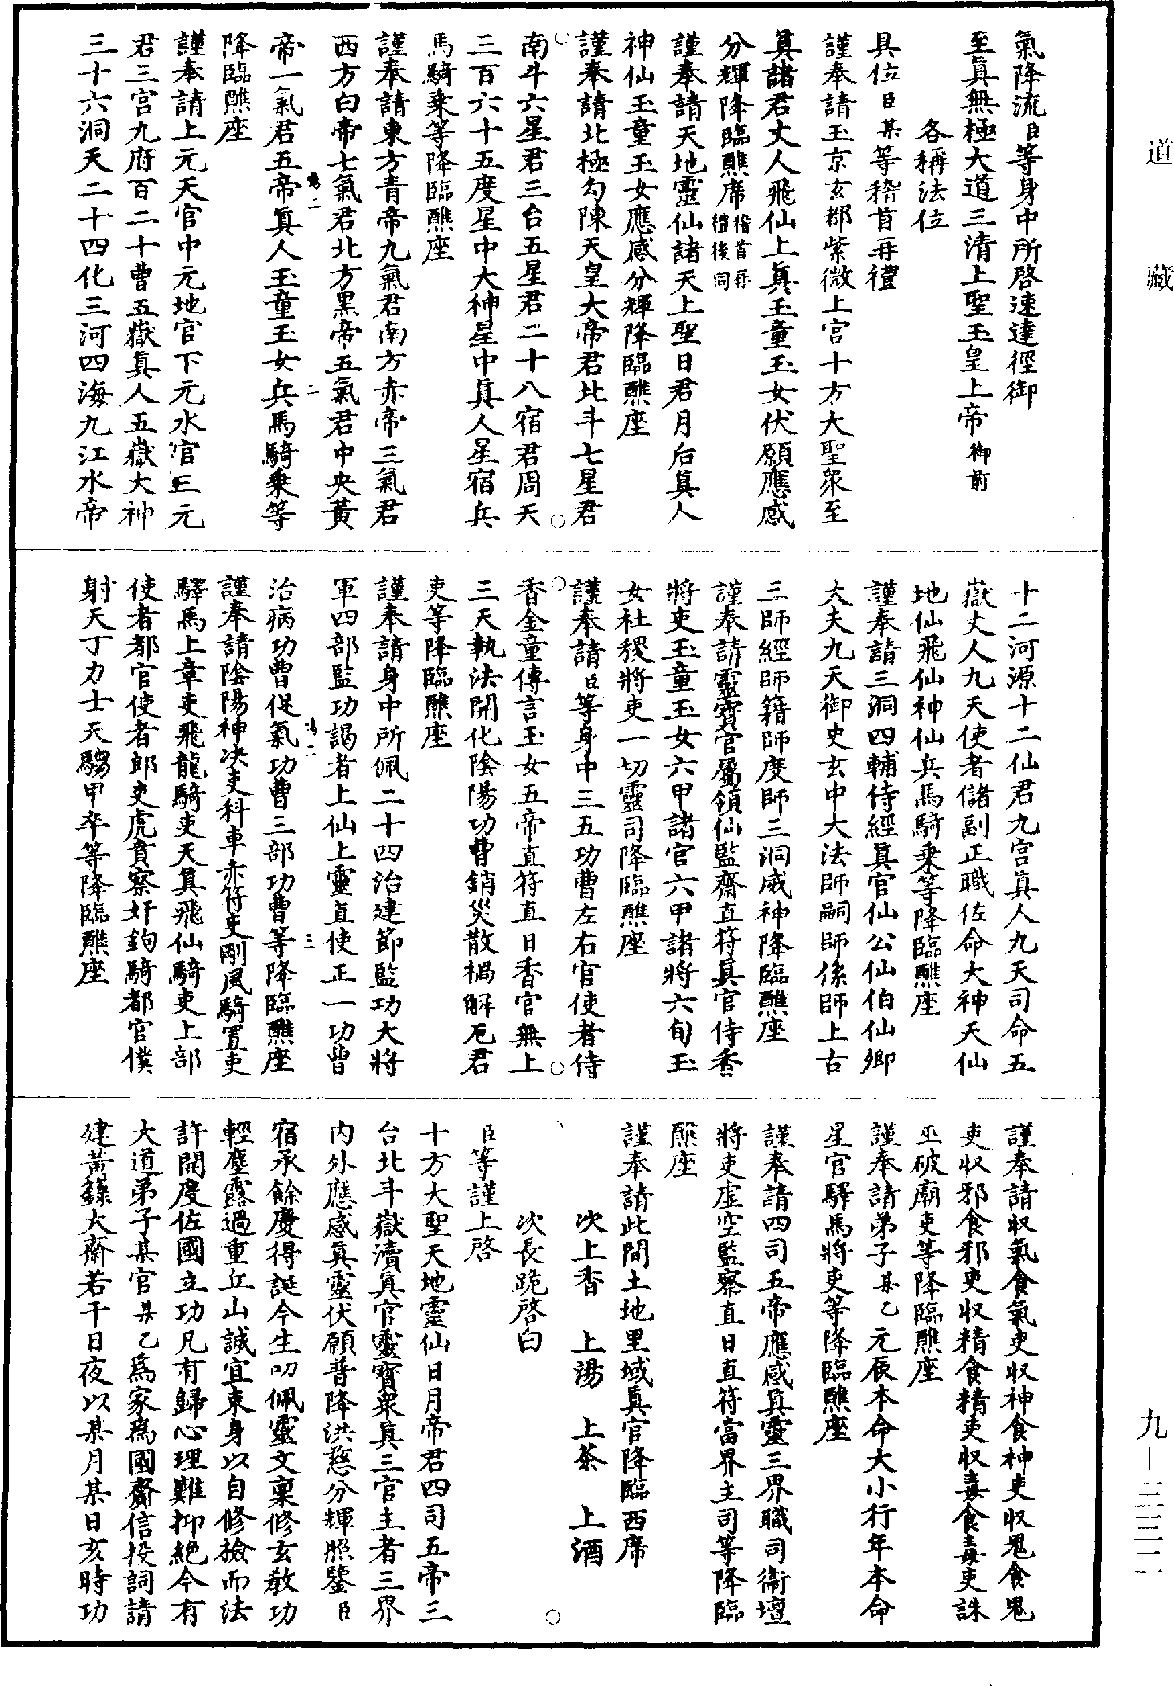 道藏
氣降流臣等身中所啓速達徑御
至眞無極大道三清上聖玉皇上帝御前
各稱法位
具位臣某等稽首再禮
謹奉請玉京玄都紫微上宮十方大聖衆至
眞諸君丈人飛仙上眞玉童玉女伏願應感
分輝降臨醮席稽首再禮後同
謹奉請天地靈仙諸天上聖日君月后眞人
神仙玉童玉女應感分輝降臨醮座
謹奉請北極勾陳天皇大帝君北斗七星君
南斗六星君三台五星君二十八宿君周天
三百六十五度星中大神星中眞人星宿兵
馬騎乘等降臨醮座
謹奉請東方青帝九氣君南方赤帝三氣君
西方白帝七氣君北方黑帝五氣君中央黃
帝一氣君五帝眞人玉童玉女兵馬騎乘等
降臨醮座
謹奉請上元天官中元地官下元水官三元
君三宮九府百二十曹五嶽眞人五嶽大神
三十六洞天二十四化三河四海九江水帝
十二河源十二仙君九宮眞人九天司命五
嶽丈人九天使者儲副正職佐命大神天仙
地仙飛仙神仙兵馬騎乘等降臨醮座
謹奉請三洞四輔侍經眞官仙公仙伯仙卿
大夫九天御史玄中大法師嗣師係師上古
三師經師籍師度師三洞威神降臨醮座
謹奉請靈寶官屬領仙監齋直符眞官侍香
將吏玉童玉女六甲諸官六甲諸將六旬玉
女社稷將吏一切靈司降臨醮座
謹奉請臣等身中三五功曹左右官使者侍
香金童傳言玉女五帝直符直日香官無上
三天執法開化陰陽功曹銷災散禍解厄君
吏等降臨醮座
謹奉請身中所佩二十四治建節監功大將
軍四部監功謁者上仙上靈直使正一功曹
治病功曹促氣功曹三部功曹等降臨醮座
謹奉請陰陽神決吏科車赤符吏剛風騎置吏
驛馬上章吏飛龍騎吏天眞飛仙騎吏上部
使者都官使者郎吏虎賁察奸鉤騎都官僕
射天丁力士天騶甲卒等降臨醮座
謹奉請収氣食氣吏収神食神吏収鬼食鬼
吏収邪食邪吏収精食精吏収毒食毒吏誅
巫破廟吏等降臨醮座
謹奉請弟子某乙元辰本命大小行年本命
星官驛馬將吏等降臨醮座
謹奉請四司五帝應感眞靈三界職司衞壇
將吏虛空監察直日直符當界主司等降臨
醮座
謹奉請此間土地里域眞官降臨西席
次上香　上湯　上茶　上酒
次長跪啓白
臣等謹上啓
十方大聖天地靈仙日月帝君四司五帝三
台北斗嶽瀆眞官靈寶衆眞三官主者三界
內外應感眞靈伏願普降洪慈分輝照鑒臣
宿承餘慶得誕今生叨佩靈文稟修玄教功
輕塵露過重丘山誠宜束身以自修撿而法
許開度佐國立功凡有歸心理難抑絕今有
大道弟子某官某乙爲家爲國齎信投詞請
建黃籙大齋若干日夜以某月某日亥時功
九—三三二